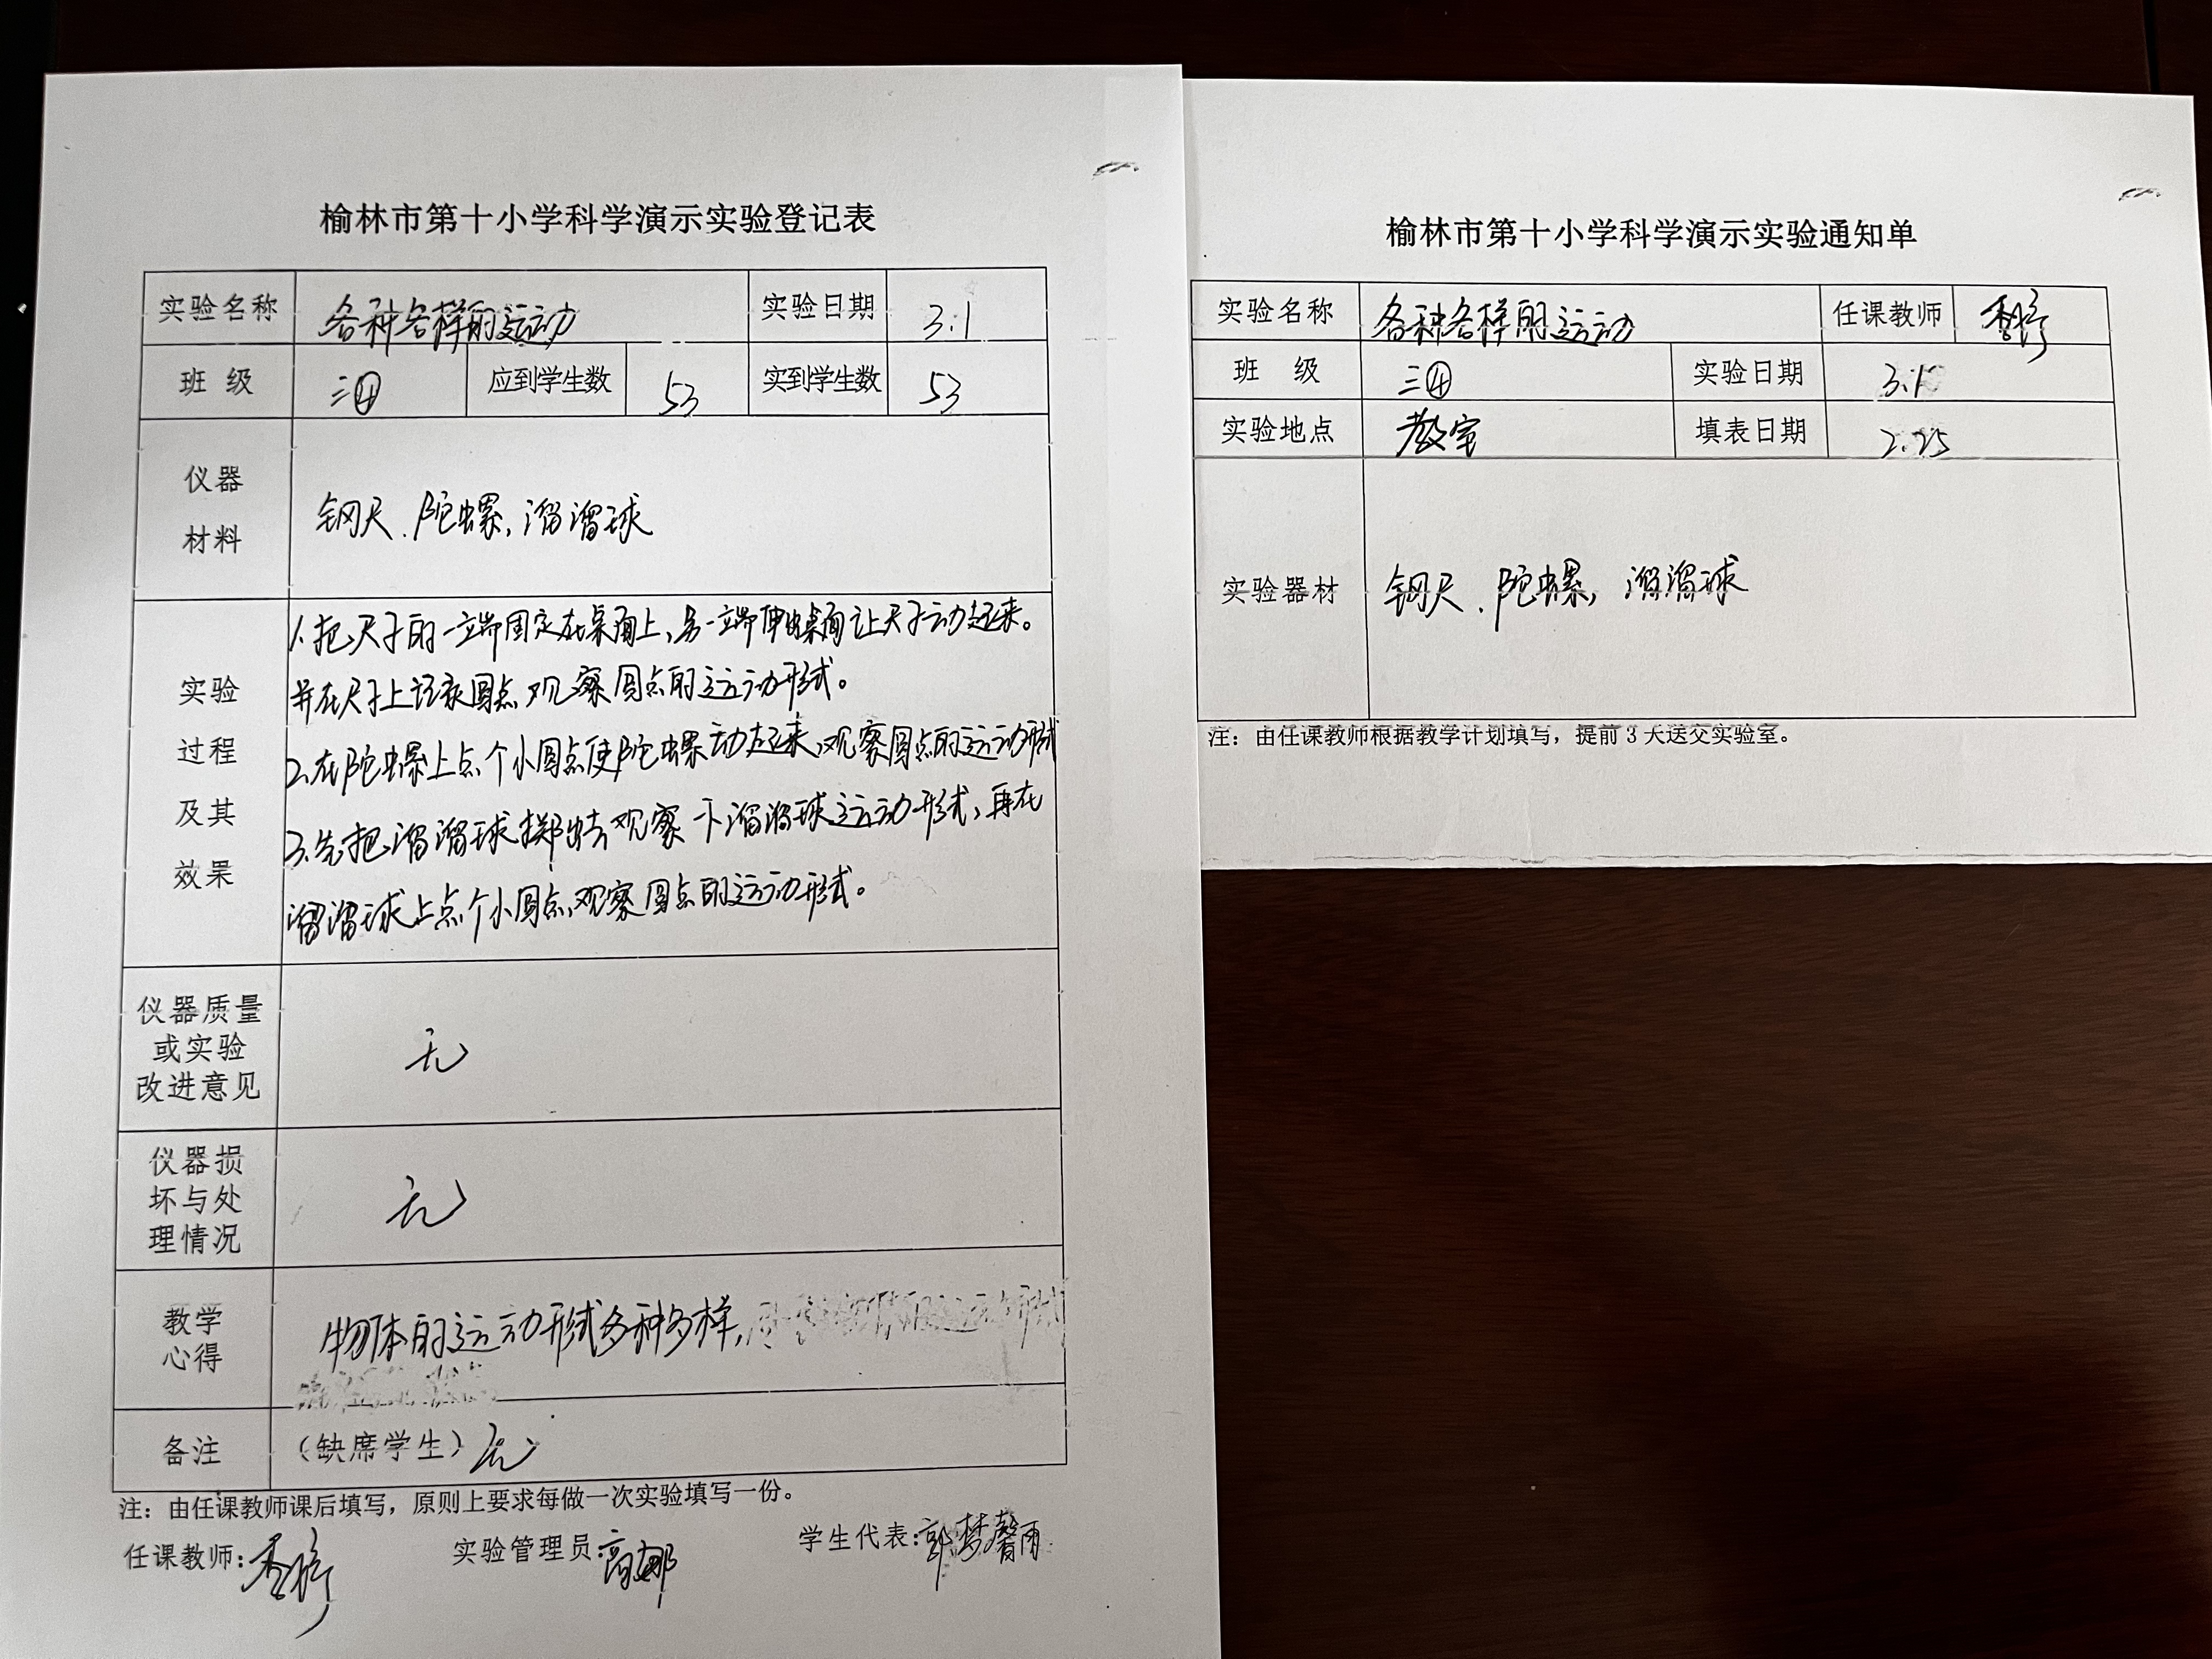 榆林市第十小学科学演示实验登记表
实验名称 各种各样的运动 实验日期 3.1
班 级 三④ 应到学生数 53 实到学生数 53
仪器
材料
钢尺、陀螺,溜溜球
实验
过程
及其
效果
1.把尺子的一端固定在桌面上,另一端伸出桌面让尺子动起来。
并在尺子上记录圆点,观察圆点的运动形式。
2.在陀螺上点个小圆点使陀螺动起来,观察圆点的运动形式
3.先把溜溜球掷出去观察一下溜溜球运动形式,再在
溜溜球上点个小圆点,观察圆点的运动形式。
仪器质量
或实验
改进意见
无
仪器损
坏与处
理情况
无
教学
心得
物体的运动形式多种多样,
备注 (缺席学生) 无
注:由任课教师课后填写,原则上要求每做一次实验填写一份。
任课教师: 实验管理员:高娜 学生代表:郭梦馨雨
榆林市第十小学科学演示实验通知单
实验名称 各种各样的运动 任课教师
班 级 三④ 实验日期 3.1
实验地点 教室 填表日期 2.25
实验器材 钢尺、陀螺,溜溜球
注:由任课教师根据教学计划填写,提前3天送交实验室。